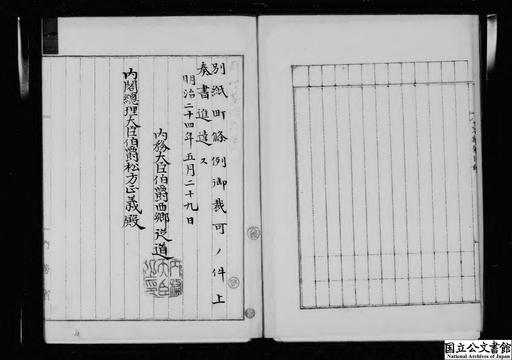 別紙町條例御裁可ノ件上
奏書進達ス
明治二十四年五月二十九日
内務大臣伯爵西郷従道
内務大臣之印
内閣總理大臣伯爵松方正義殿
国立公文書館
National Archives of Japan